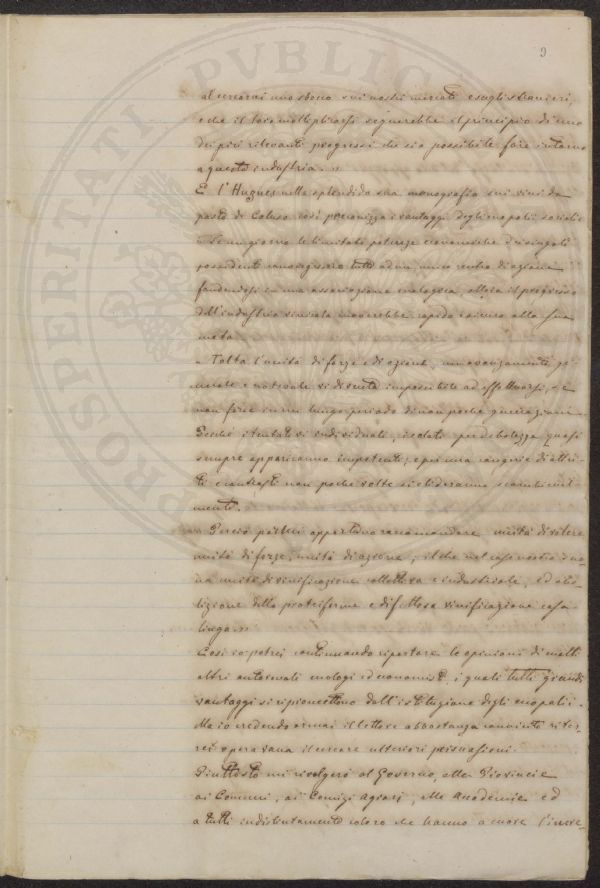 9
al cercarsi uno sbocco sui nostri mercati e sugli stranieri,
e che il loro moltiplicarsi segnerebbe il principio di uno
dei più rilevanti progressi che sia possibile fare intorno
a questa industria. »
E l'Hugues nella splendida sua monografia sui vini da
pasto di Coluso così preconizza i vantaggi degli enopolii sociali:
« Se un giorno le limitate potenze economiche dei singoli
possidenti convergessero tutte ad un unico centro di azione
fondendosi in una associazione enologica, allora il progresso
dell'industria vinicola moverebbe rapido e sicuro alla sua
meta.
« Tolta l'unità di forze e di azione, un avanzamento ge-
nerale e notevole si diventa impossibile ad effettuarsi, se
non forse in un lungo periodo di non poche generazioni.
Perché i tentativi individuali, isolati per debolezza quasi
sempre appariranno impotenti; e per una congerie di attri-
ti e contrasti non poche volte si elideranno scambievol-
mente.
« Perciò parmi opportuno raccomandare unità di volere
unità di forze, unità di azione; il che nel caso nostro suo-
na unità di vinificazione collettiva e industriale, ed abo-
lizione della proteiforme e difettosa vinificazione casa-
linga. »
Così io potrei continuando riportare le opinioni di molti
altri autorevoli enologi ed economisti, i quali tutti grandi
vantaggi si ripromettono dall'istituzione degli enopolii.
Ma io credendo ormai il lettore abbastanza convinto riter-
rei opera vana il cercare ulteriori persuasioni.
Piuttosto mi rivolgerò al Governo, alle Provincie
ai Comuni, ai Comizi Agrari, alle Accademie ed
a tutti indistintamente coloro che hanno a cuore l'incre-
PROSPERITATI PVBLICAE